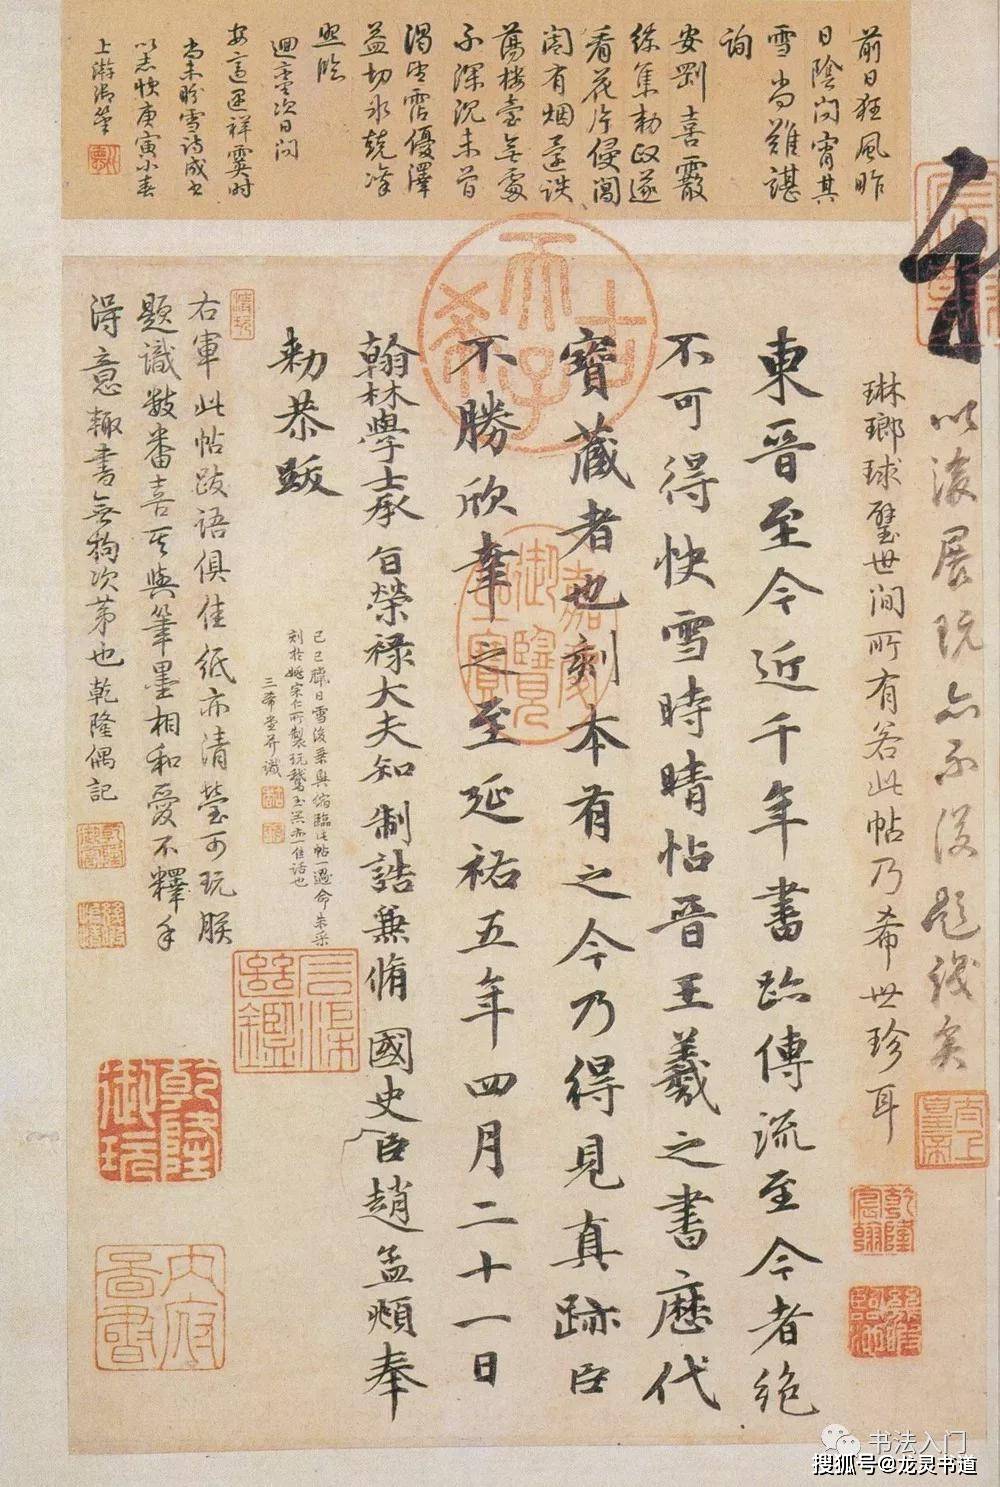 前日狂風昨
日陰向宵其
雪尚難諶
詢
安剛喜霰
綜集勅政遂
看花片侵閣
有烟
蕩樓臺無處
不深沉未肯
渴望霑優澤
益切冰兢凜
照臨
迴鑾次日向
尚未盼雪詩成書
以志懷庚寅小春
上澣御筆
以後展玩亦不復題識矣
琳瑯球璧世間所有若此帖乃希世珍耳
東晉至今近千年書跡傳流至今者絶
不可得快雪時晴帖晉王羲之書歷代
寶藏者也刻本有之今乃得見真跡臣
不勝欣幸之至延祐五年四月二十一日
翰林學士承旨榮禄大夫知制誥兼脩國史臣趙孟頫奉
勅恭跋
己巳臘日雪後乘興偹臨此帖一過命朱采
刻於姚宗仁所製玩鵞玉器亦一佳話也
三希堂并識
右軍此帖跋語俱佳紙亦清瑩可玩朕
題識數番喜其與筆墨相和愛不釋手
得意輒書無拘次第也乾隆偶記
古希天子
嘉慶御覽之寶
太上皇帝
乾隆宸翰
乾隆御玩
內府圖書
书法入门
搜狐号@龙灵书道